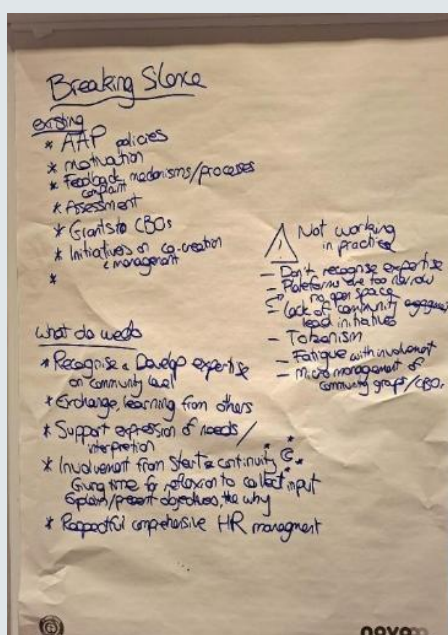 Breaking Silence
existing
* AAP policies
* motivation
* Feedback mechanisms/processes
complaint
* Assessment
* Grants to CBOs
* Initiatives on co-creation
& management
*
! Not working
in practice
- Don't recognise expertise
- Plateforms are too narrow
no open space
- Lack of community
lead initiatives
- Tokanism
- Fatigue with involvement
- Micro management of
community groups/CBO.
what do we do
* Recognise & Develop expertise
on community level
* Exchange, learning from others
* Support expression of needs/
interpretation
* Involvement from start & continuity
Giving time for reflexion to collect input
Explain/present objectives, the why
* Respectful comprehensive HR managment